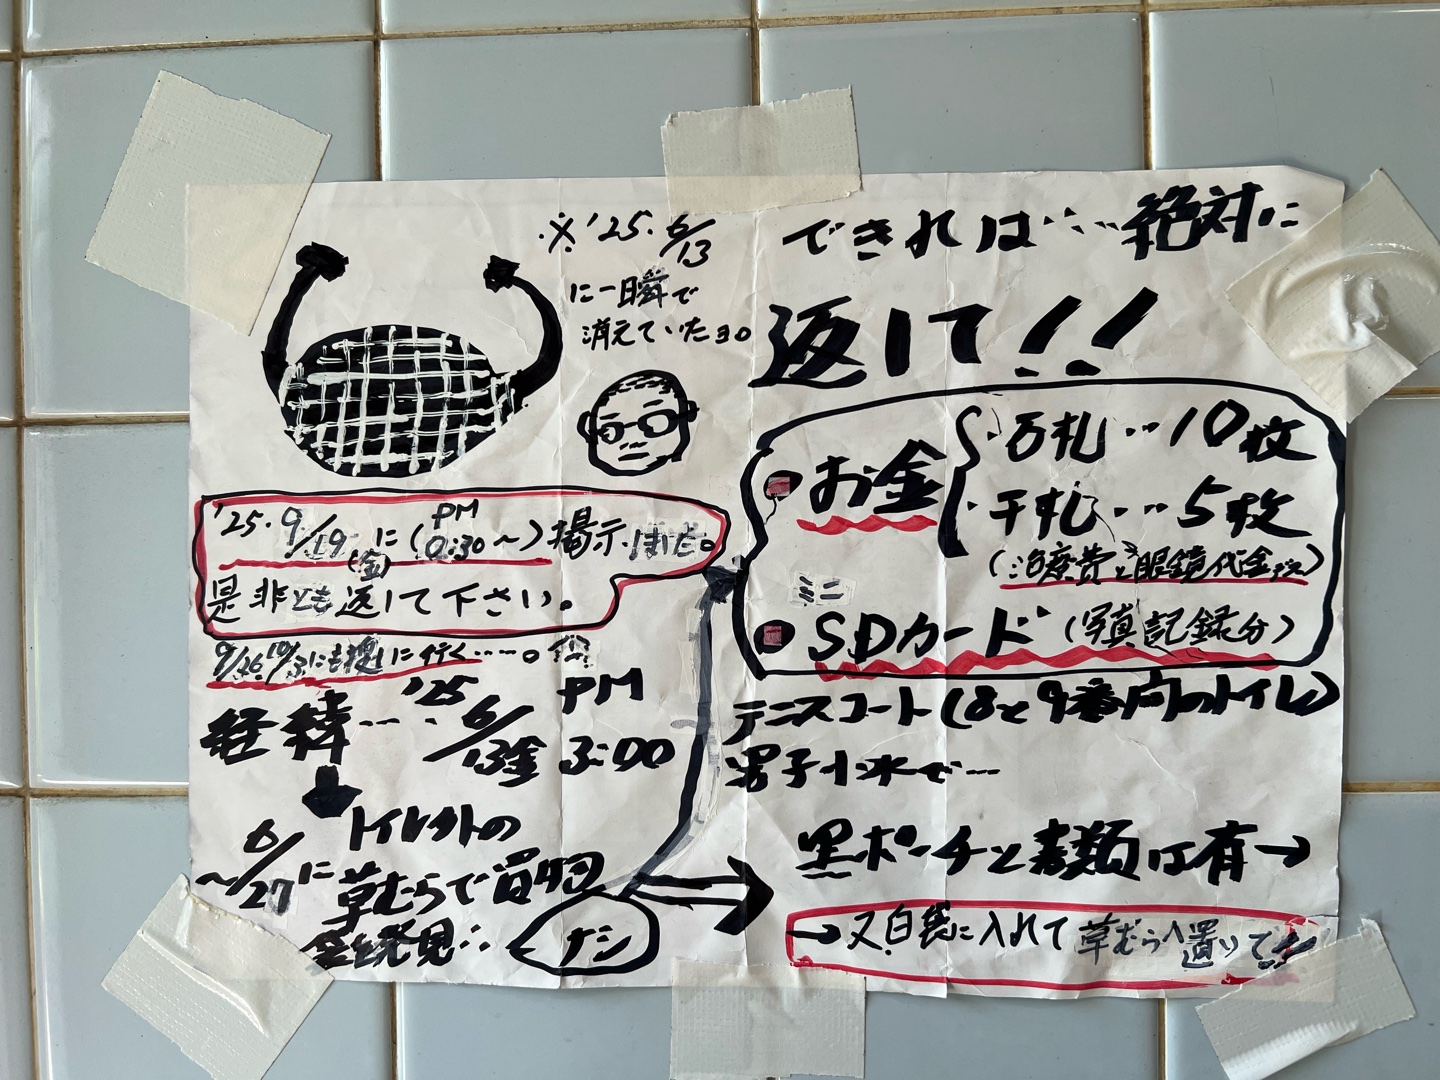 ※'25.6/13
に一瞬で
消えていたヨ。
できれば…絶対に
返して!!
お金
・万札…10枚
・千札…5枚
(治療費と眼鏡代金
ミニ
SDカード(写真記録分)
'25.9/19(金)に(PM0:30〜)掲示
是非とも返して下さい。
9/26 10/3にも
に行く…。
経緯…'25 6/13金 PM3:00
テニスコート(8と9番
のトイレ)
男子小水で…
〜6/27に
トイレ外の
草むらで
発見∴
ナシ
黒ポーチと書類は有→
→又白袋に入れて草むらへ置いて!!